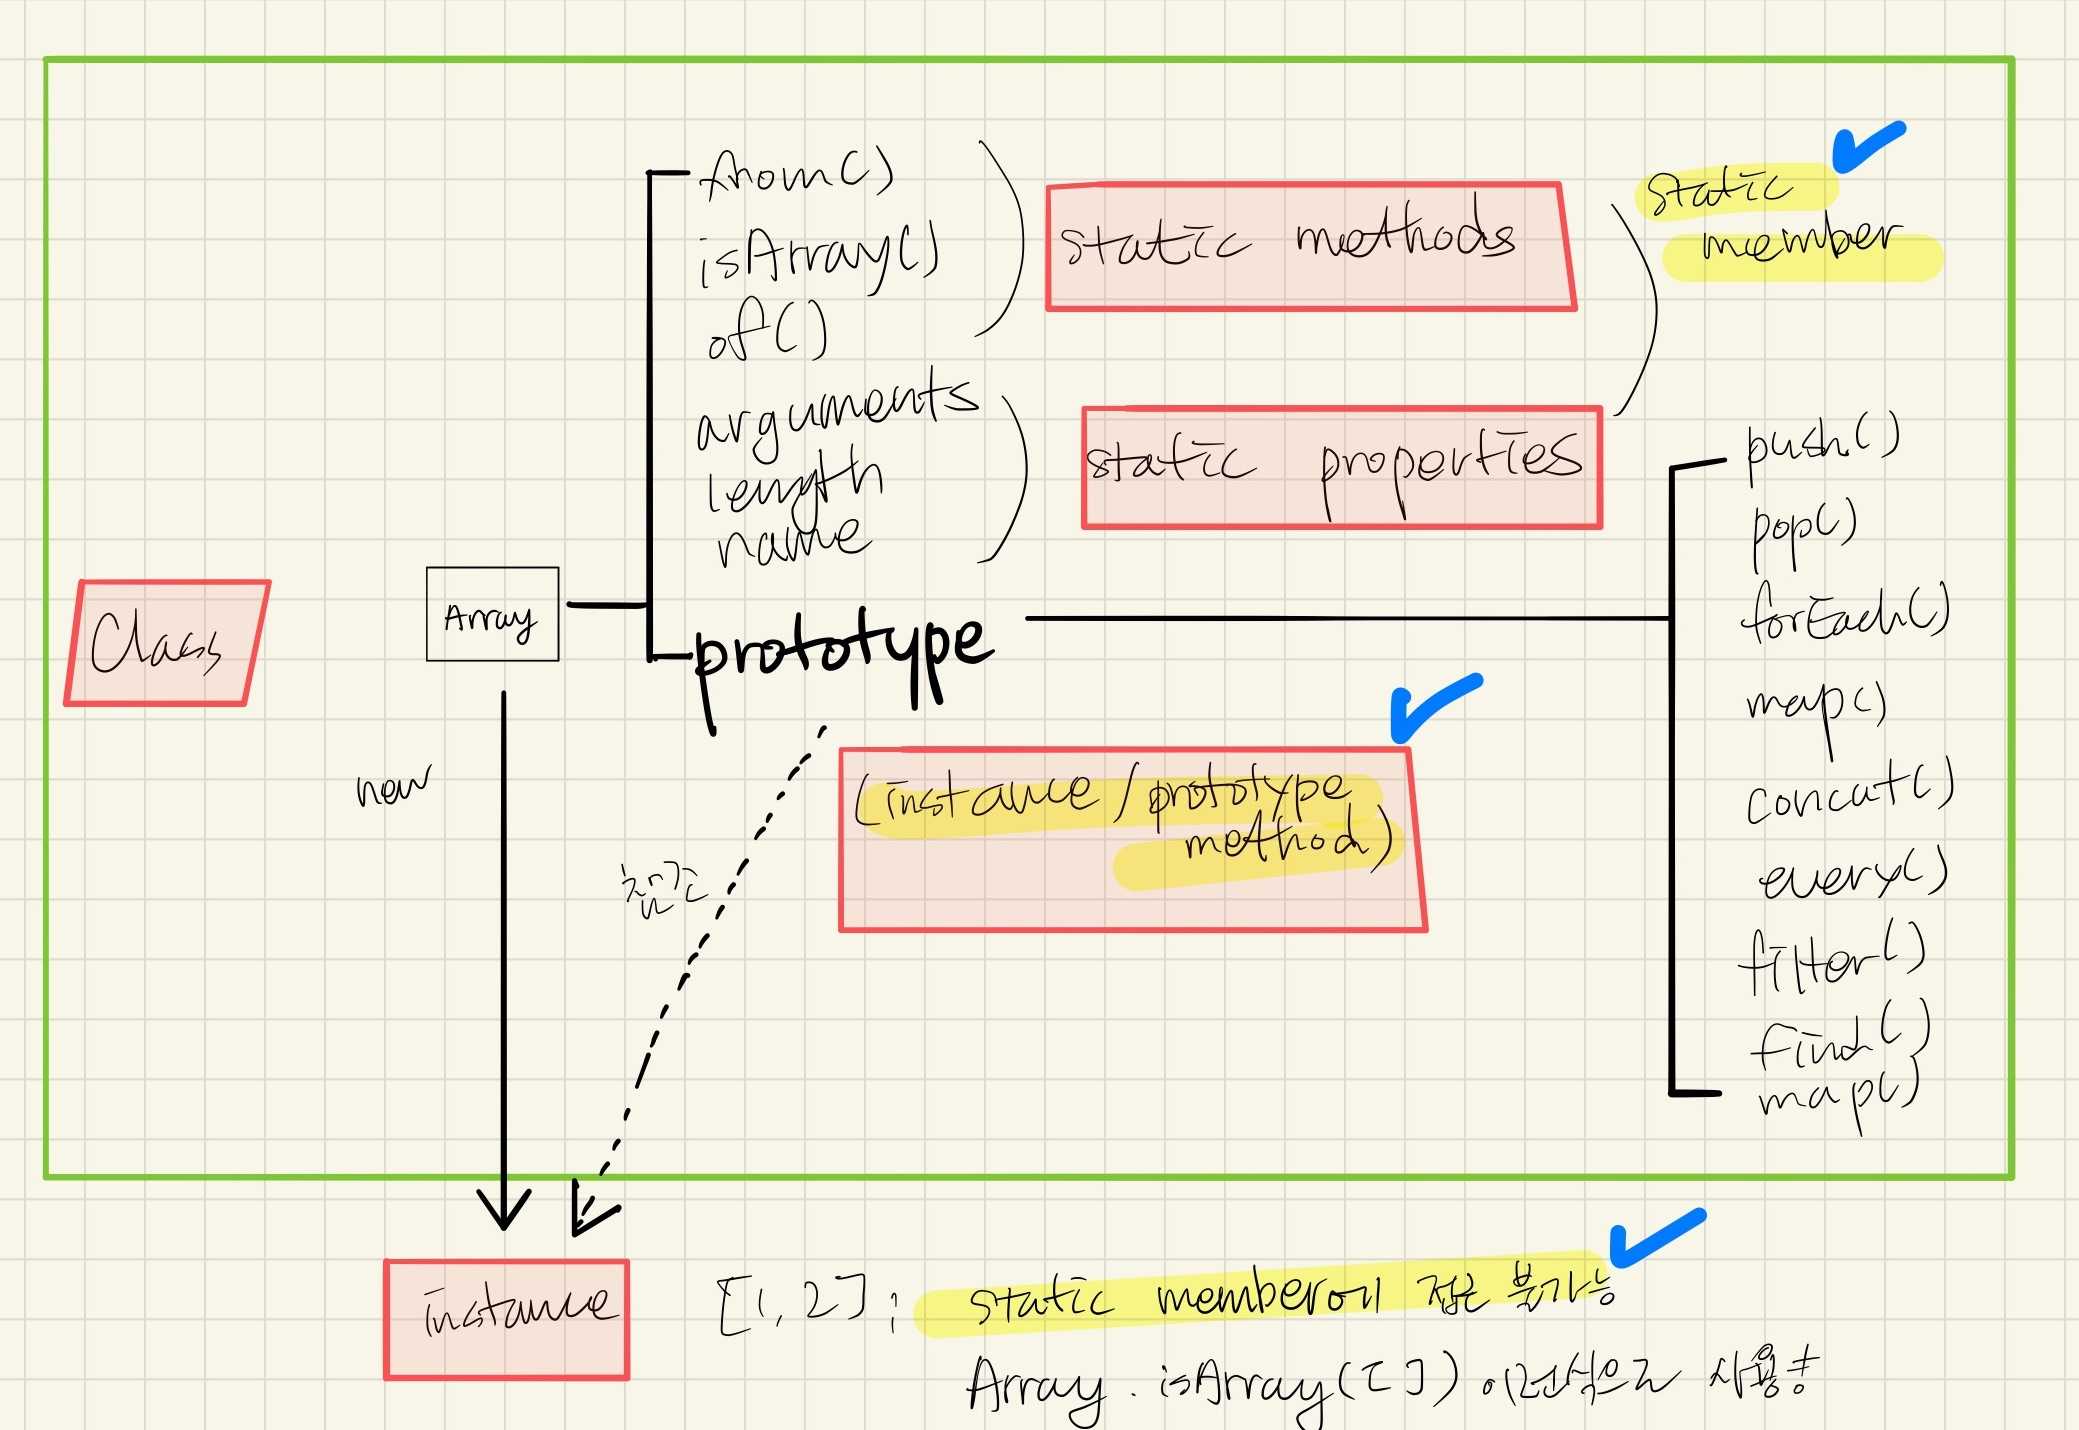 from()
isArray()
of()
static methods
static
member
arguments
length
name
static properties
Class
Array
prototype
push()
pop()
forEach()
map()
concat()
every()
filter()
find()
map()
new
참조
(instance / prototype
method)
instance
[1, 2]; static member에 접근 불가능
Array.isArray([]) 이런식으로 사용